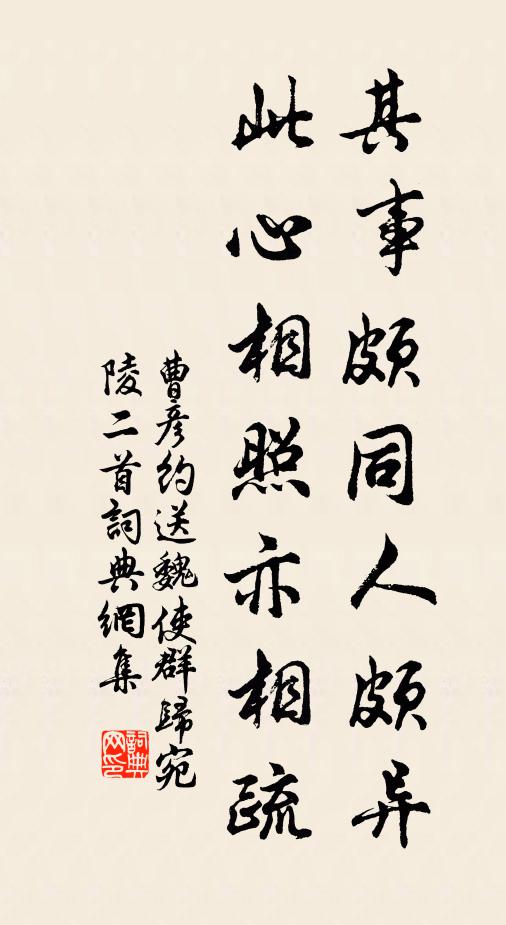 其事頗同人頗异
此心相照亦相疏
曹彦約送魏使群歸宛
陵二首詞典網集
詞典
网印